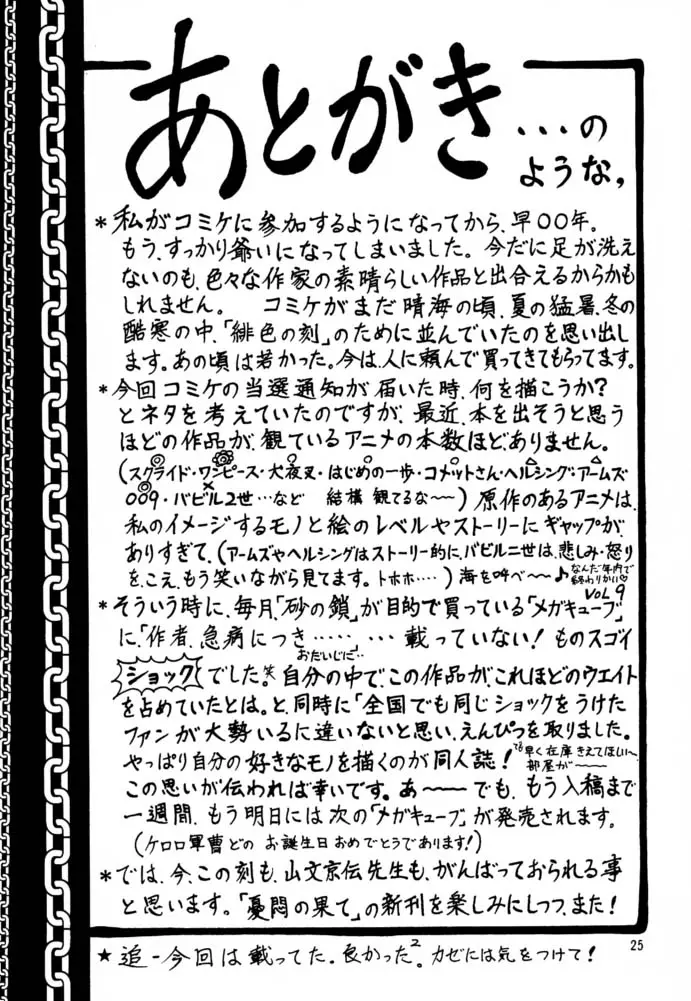 あとがき
…の
ような。
* 私がコミケに参加するようになってから、早〇〇年。
もう、すっかり爺いになってしまいました。今だに足が洗え
ないのも、色々な作家の素晴らしい作品と出合えるからかも
しれません。 コミケがまだ晴海の頃、夏の猛暑、冬の
酷寒の中、「緋色の刻」のために並んでいたのを思い出し
ます。あの頃は若かった。今は、人に頼んで買ってきてもらってます。
* 今回コミケの当選通知が届いた時、何を描こうか?
とネタを考えていたのですが、最近、本を出そうと思う
ほどの作品が、観ているアニメの本数ほど、ありません。
(スクライド・ワンピース・犬夜叉・はじめの一歩・コメットさん・ヘルシング・アームズ
009・バビル2世…など 結構 観てるな〜〜) 原作のあるアニメは、
私のイメージするモノと絵のレベルやストーリーにギャップが
ありすぎて、(アームズやヘルシングはストーリー的に、バビル二世は、悲しみ・怒り
を、こえ、もう笑いながら見てます。トホホ‥‥) 海を呼べ〜〜♪
なんだ年内で
終わりかい♡
* そういう時に、毎月、「砂の鎖」が目的で買っている「メガキューブ」
VOL9
に、「作者、急病につき‥‥‥」…載っていない! ものスゴイ
おだいじに‥
ショックでした。笑 自分の中で、この作品が、これほどのウエイト
を占めていたとは。と、同時に「全国でも同じショックをうけた
ファンが大勢いるに違いないと思い、えんぴつを取りました。
やっぱり自分の好きなモノを描くのが同人誌!
でも早く在庫きえてほしい〜
部屋が〜〜
この思いが伝われば幸いです。あ〜〜〜でも、もう入稿まで
一週間、もう明日には次の「メガキューブ」が発売されます。
(ケロロ軍曹どの お誕生日おめでとうであります!)
* では、今、この刻も、山文京伝先生も、がんばっておられる事
と思います。「憂悶の果て」の新刊を楽しみにしつつ、また!
25
★ 追-今回は載ってた。良かった2。カゼには気をつけて!